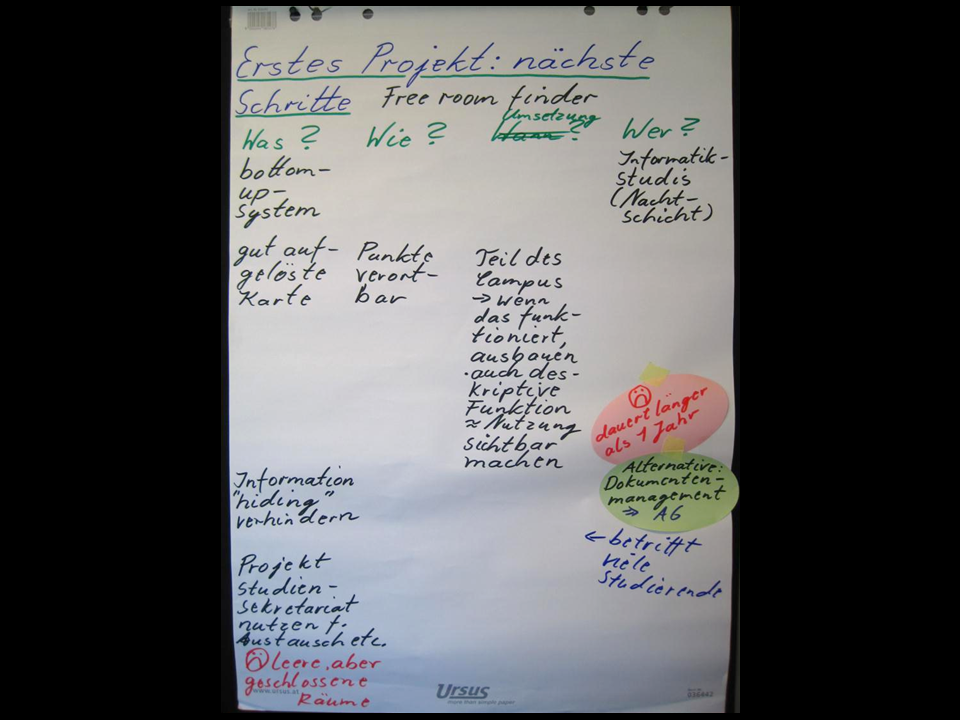 Erstes Projekt: nächste
Schritte Free room finder
Was? Wie? Umsetzung ? Wer?
bottom-
up-
System
Informatik-
studis
(Nacht-
schicht)
gut auf-
gelöste
Karte
Punkte
verort-
bar
Teil des
Campus
→ wenn
das funk-
tioniert,
ausbauen
·auch des-
kriptive
Funktion
≈ Nutzung
sichtbar
machen
dauert länger
als 1 Jahr
Alternative:
Dokumenten-
management
» AG
← betrifft
viele
Studierende
Information
"hiding"
verhindern
Projekt
Studien-
sekretariat
nutzen f.
Austausch etc.
leere, aber
geschlossene
Räume
www.ursus.at
Ursus
more than simple paper